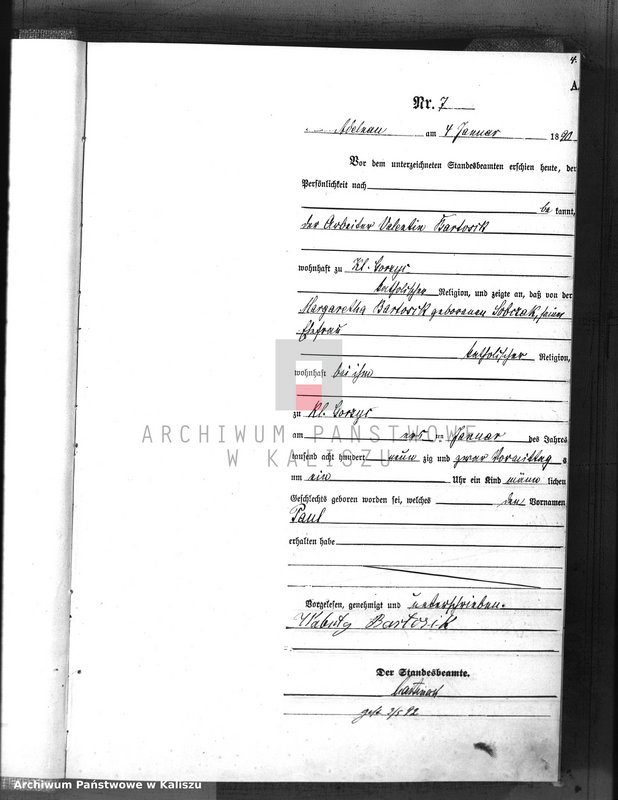 4.
A.
Nr. 7
Adelnau am 4 Januar 1890
Vor dem unterzeichneten Standesbeamten erschien heute, der
Persönlichkeit nach
be kannt,
der Arbeiter Valentin Bartosik
wohnhaft zu Kl. Gorzyc
katholischer Religion, und zeigte an, daß von der
Margaretha Bartosik geborenen Sobczak, seiner
Ehefrau
katholischer Religion,
wohnhaft bei ihm
zu Kl. Gorzyc
ARCHIWUM PAŃSTWOWE
W KALISZU
am ersten Januar des Jahres
tausend acht hundert neun zig und zwar Vormittag s
um ein Uhr ein Kind männ lichen
Geschlechts geboren worden sei, welches den Vornamen
Paul
erhalten habe
Vorgelesen, genehmigt und unterschrieben.
Bartosik
Der Standesbeamte.
Archiwum Państwowe w Kaliszu